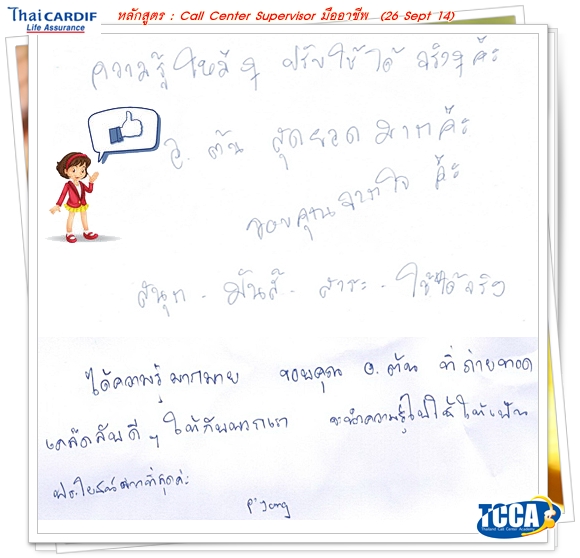 Thai CARDIF
Life Assurance
หลักสูตร : Call Center Supervisor มืออาชีพ (26 Sept 14)
ความรู้ใหม่ๆ ปรับใช้ได้ จริงๆ ค๊ะ
อ. ต้น สุดยอดมากค๊ะ
ขอบคุณจากใจ ค๊ะ
สนุก - มันส์ - สาระ - ใช้ได้จริง
ได้ความรู้มากมาย ขอบคุณ อ.ต้น ที่ถ่ายทอด
เคล็ดลับดีๆ ให้กับพวกเรา จะนำความรู้ไปใช้ให้เป็น
ประโยชน์มากที่สุดค่ะ
TCCA
Thailand Call Center Academy